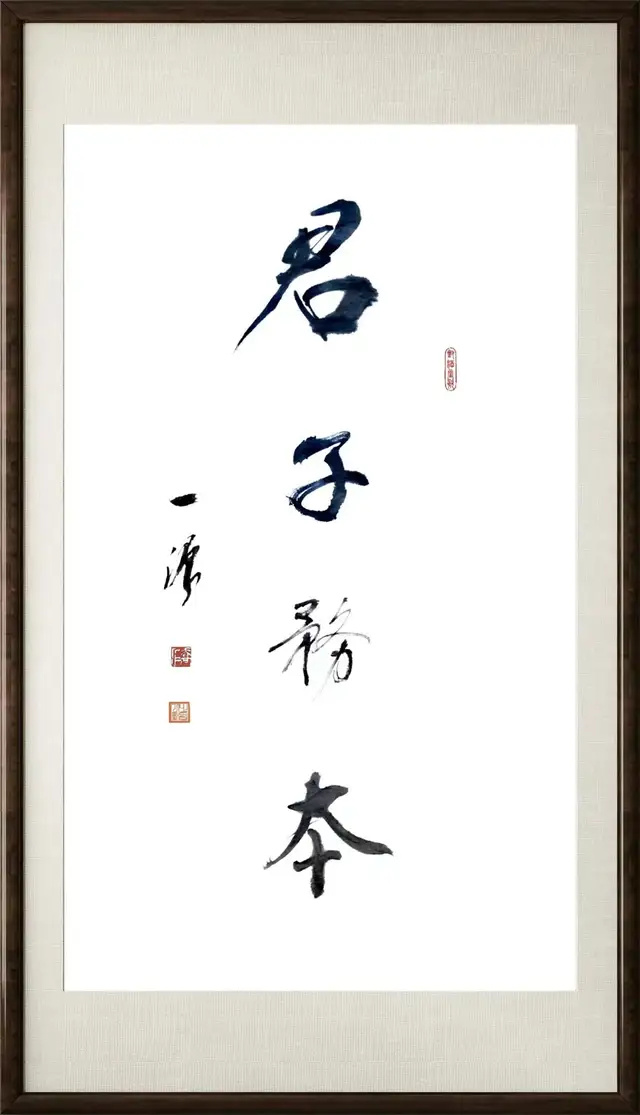 君子務本
一源